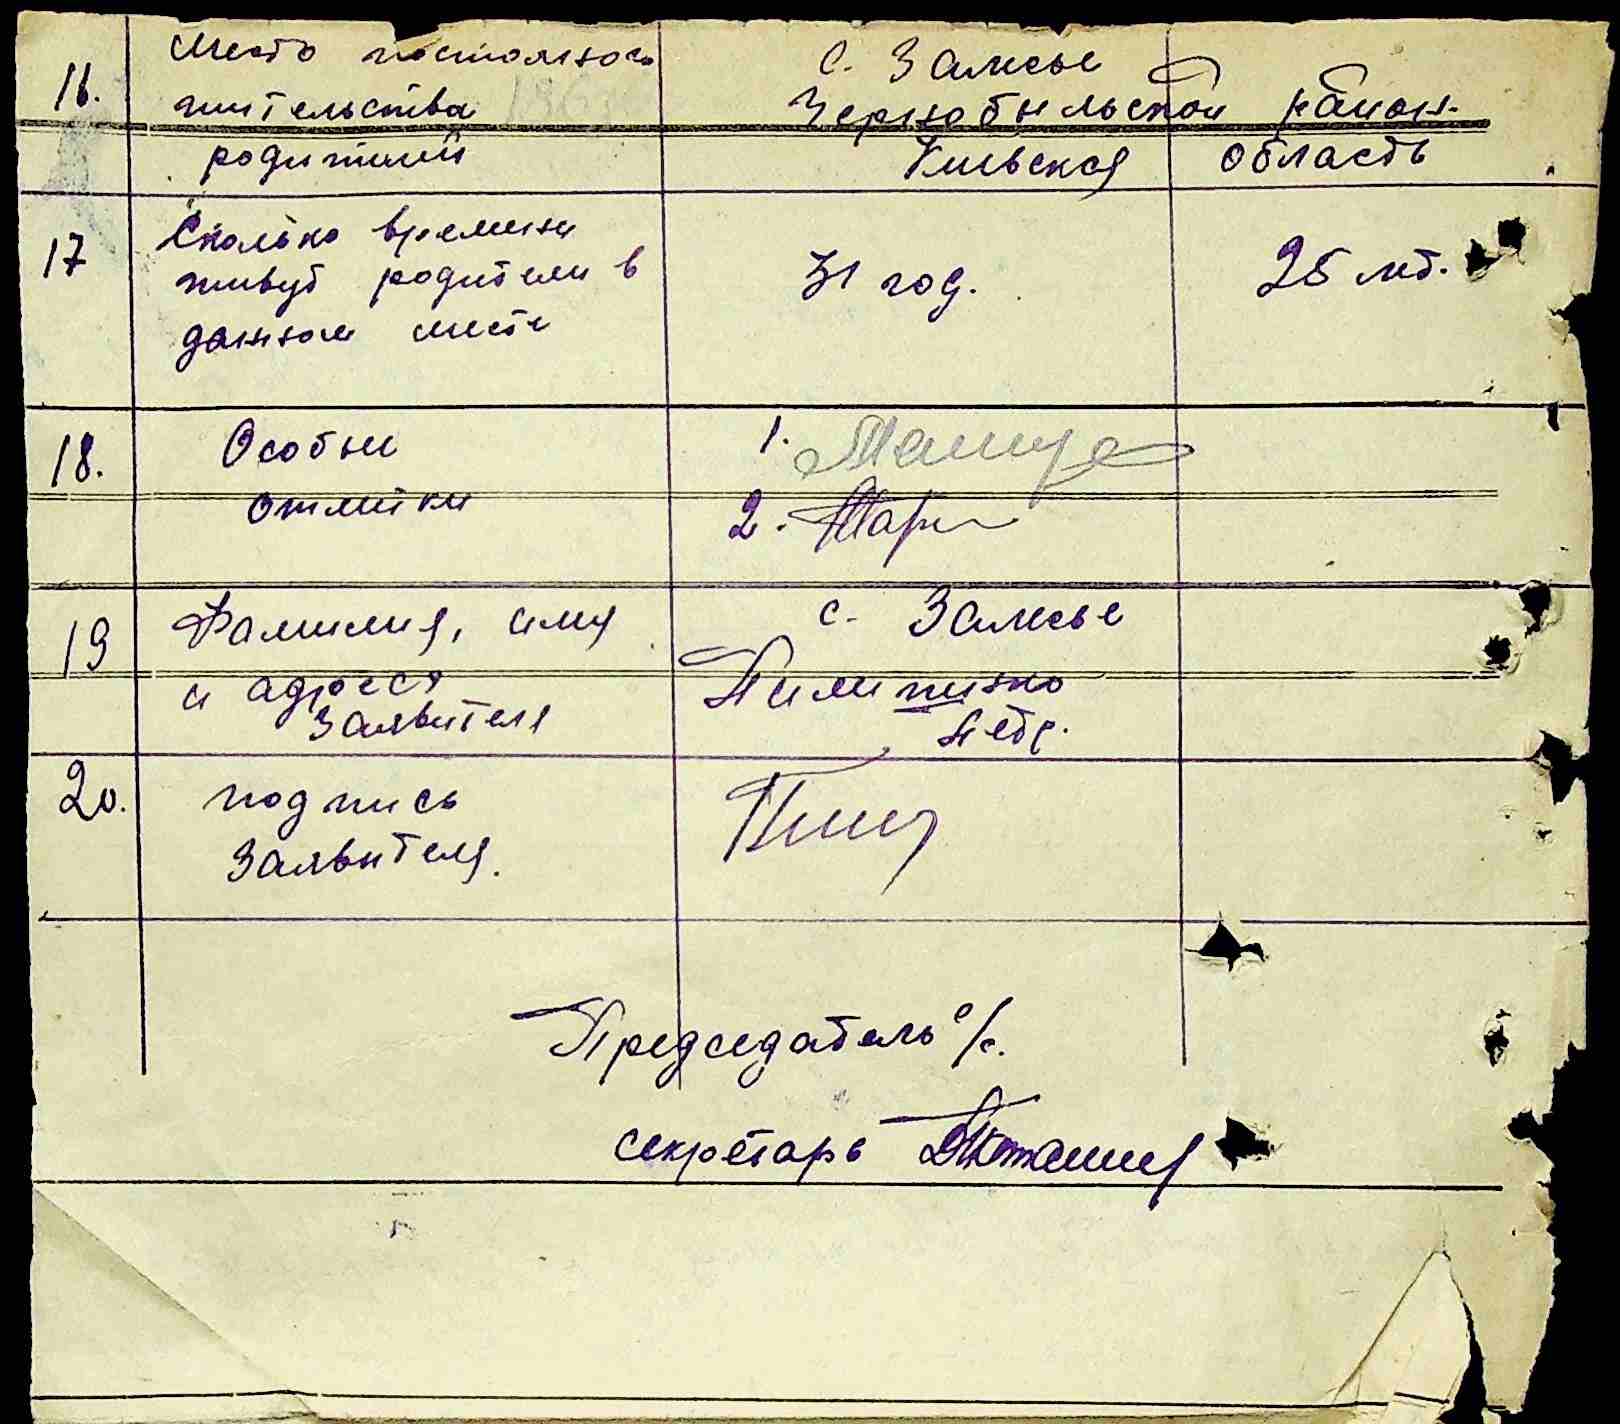 16.
Место постоянного
жительства
родителей
с. Замсье
Чернобыльской район.
Киевская область
17
Сколько времени
живут родители в
данном месте
31 год.
25 лет.
18.
Особые
отметки
1.
2.
19
Фамилия, имя
и адреся
заявителя
с. Замсье
Пилипенко
Петр.
20.
подпись
заявителя.
Председатель с/с.
секретарь